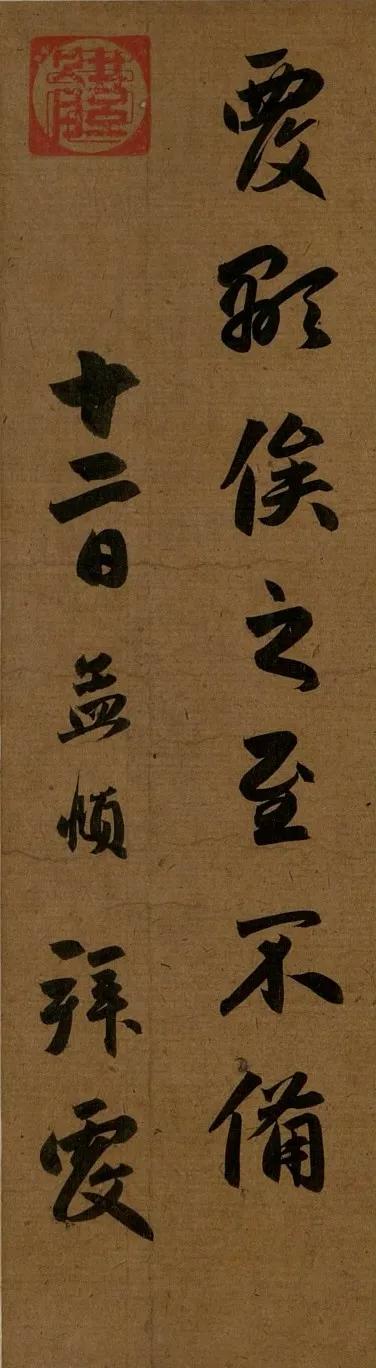 覆顒俟之至不備
十二日 孟頫 拜覆